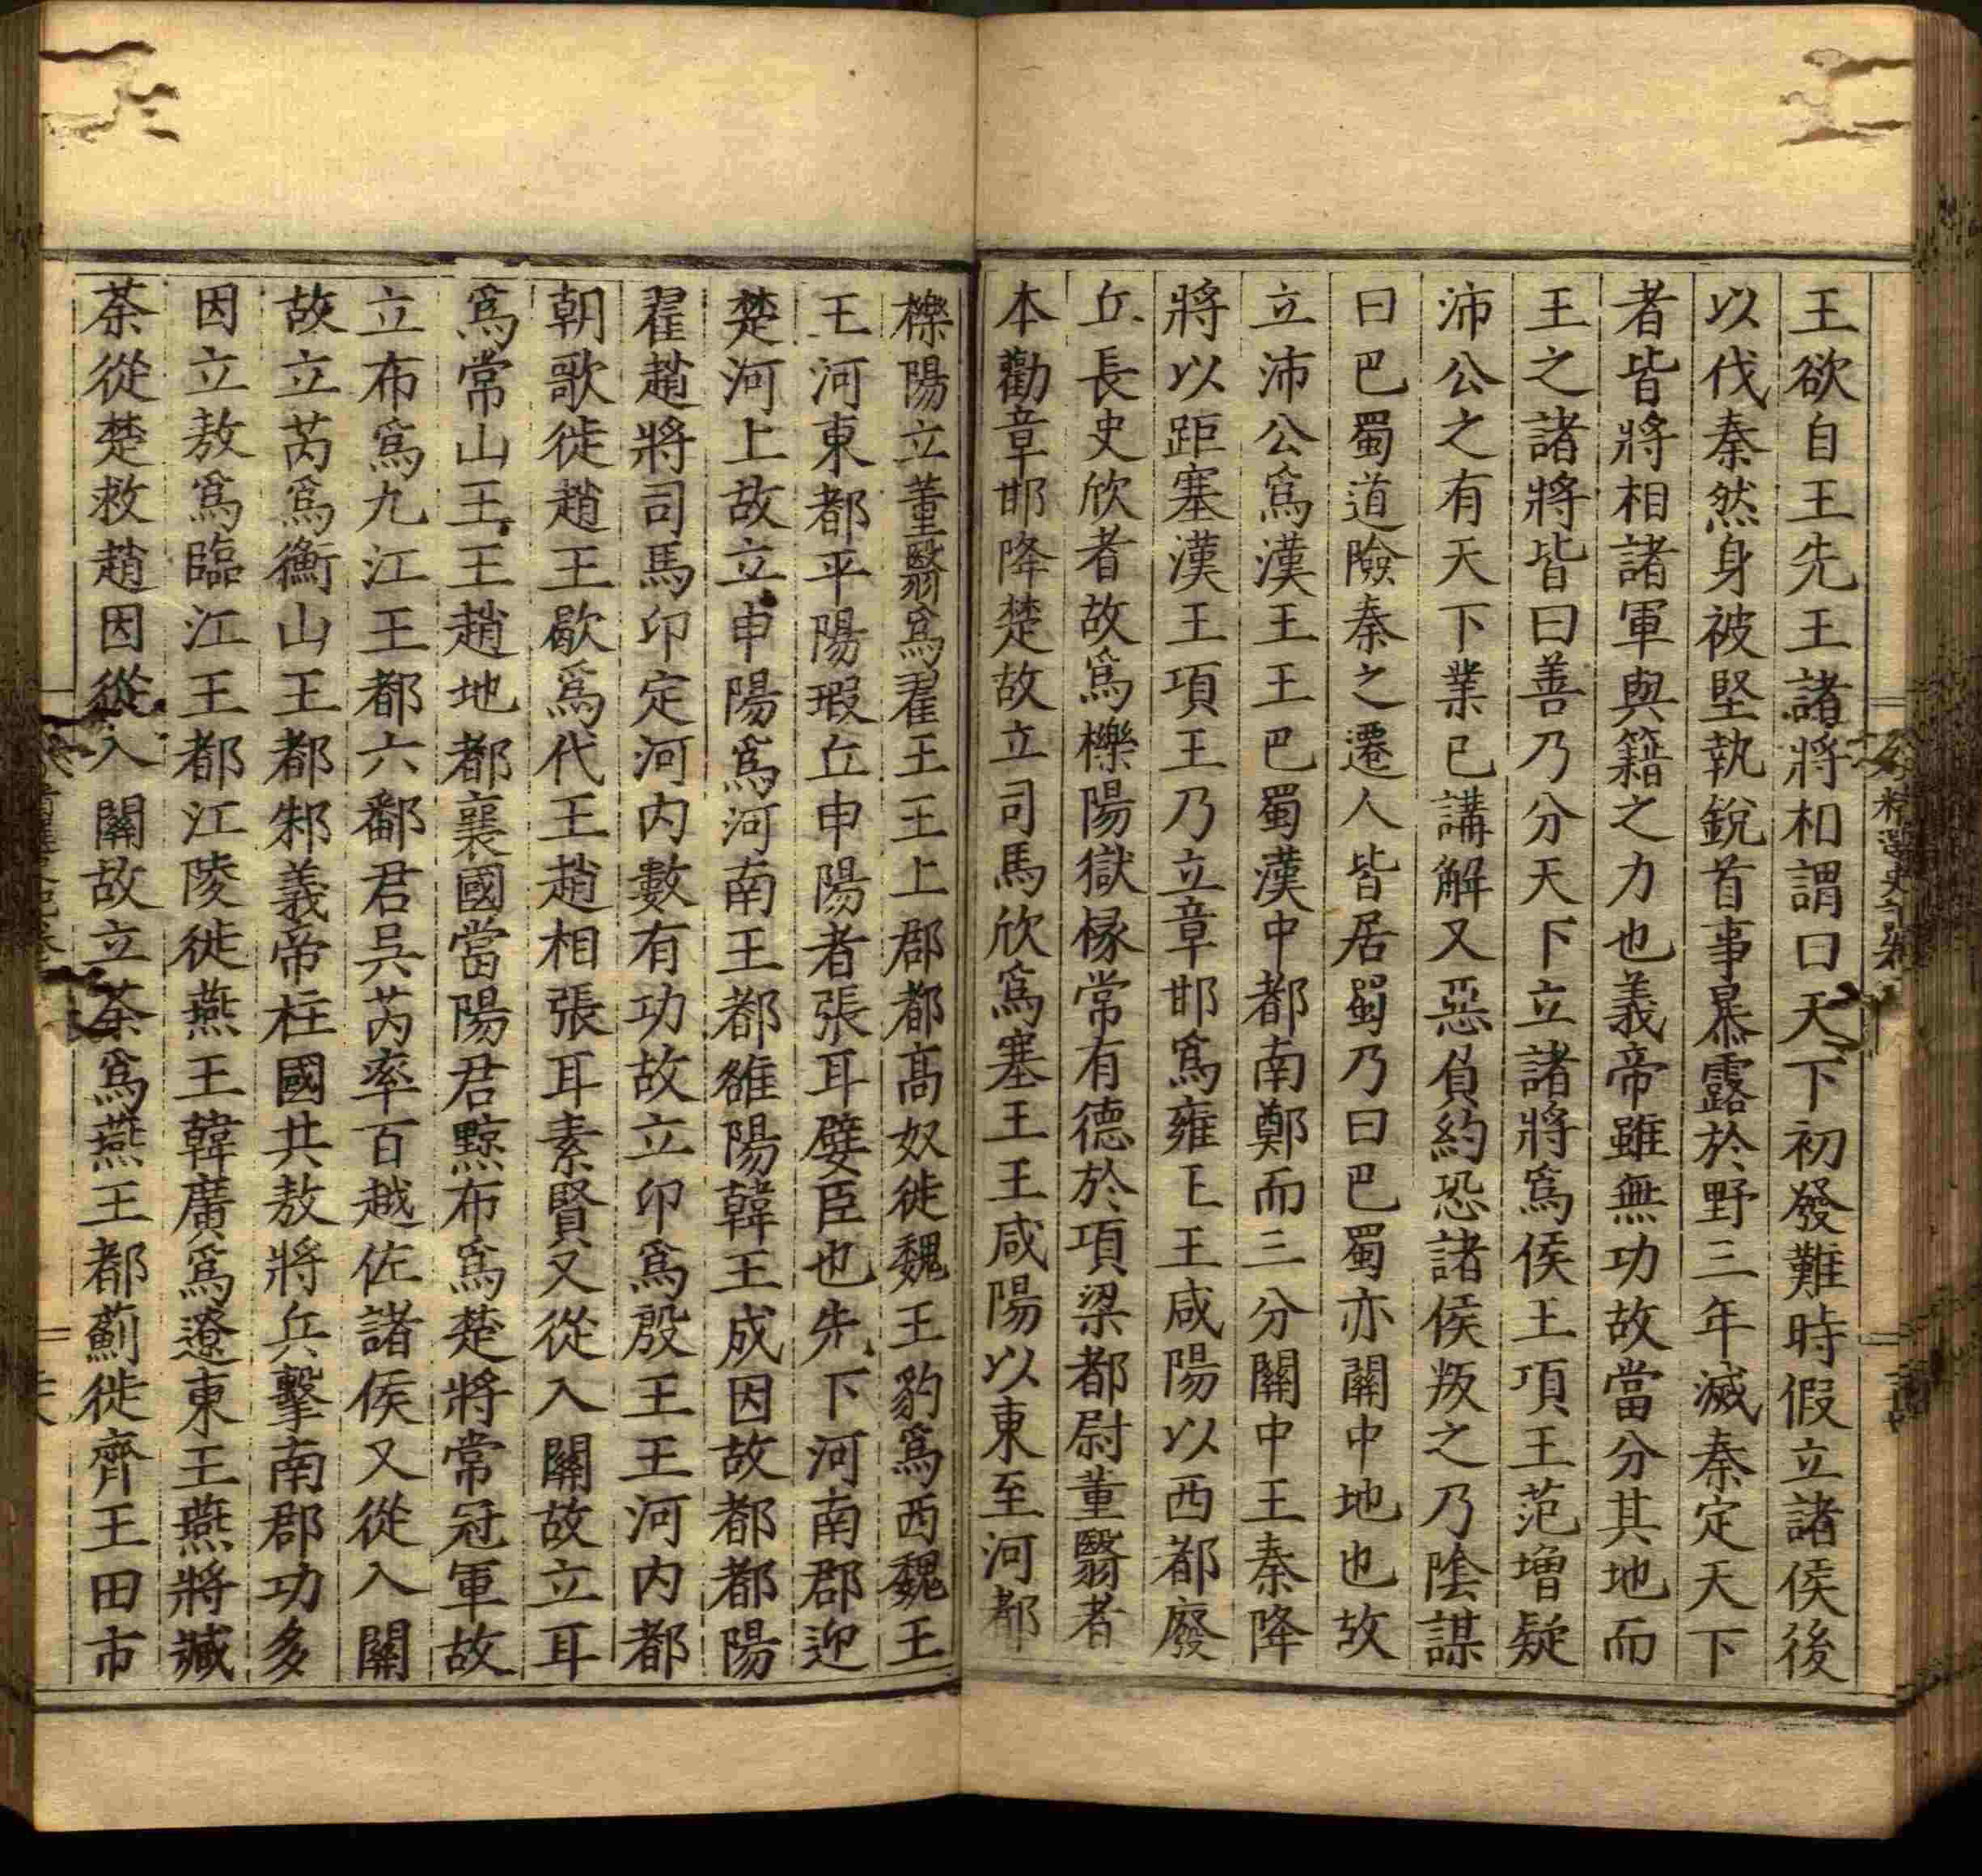 王欲自王先王諸將相謂曰天下初發難時假立諸侯後
以伐秦然身被堅執銳首事暴露於野三年滅秦定天下
者皆將相諸軍與籍之力也義帝雖無功故當分其地而
王之諸將皆曰善乃分天下立諸將爲侯王項王范增疑
沛公之有天下業已講解又惡負約恐諸侯叛之乃陰謀
曰巴蜀道險秦之遷人皆居蜀乃曰巴蜀亦關中地也故
立沛公爲漢王王巴蜀漢中都南鄭而三分關中王秦降
將以距塞漢王項王乃立章邯爲雍王王咸陽以西都廢
丘長史欣者故爲櫟陽獄掾常有德於項梁都尉董翳者
本勸章邯降楚故立司馬欣爲塞王王咸陽以東至河都
櫟陽立董翳爲翟王王上郡都高奴徙魏王豹爲西魏王
王河東都平陽瑕丘申陽者張耳嬖臣也先下河南郡迎
楚河上故立申陽爲河南王都雒陽韓王成因故都都陽
翟趙將司馬卬定河內數有功故立卬爲殷王王河內都
朝歌徙趙王歇爲代王趙相張耳素賢又從入關故立耳
爲常山王王趙地都襄國當陽君黥布爲楚將常冠軍故
立布爲九江王都六鄱君吳芮率百越佐諸侯又從入關
故立芮爲衡山王都邾義帝柱國共敖將兵擊南郡功多
因立敖爲臨江王都江陵徙燕王韓廣爲遼東王燕將臧
荼從楚救趙因從入關故立荼爲燕王都薊徙齊王田市